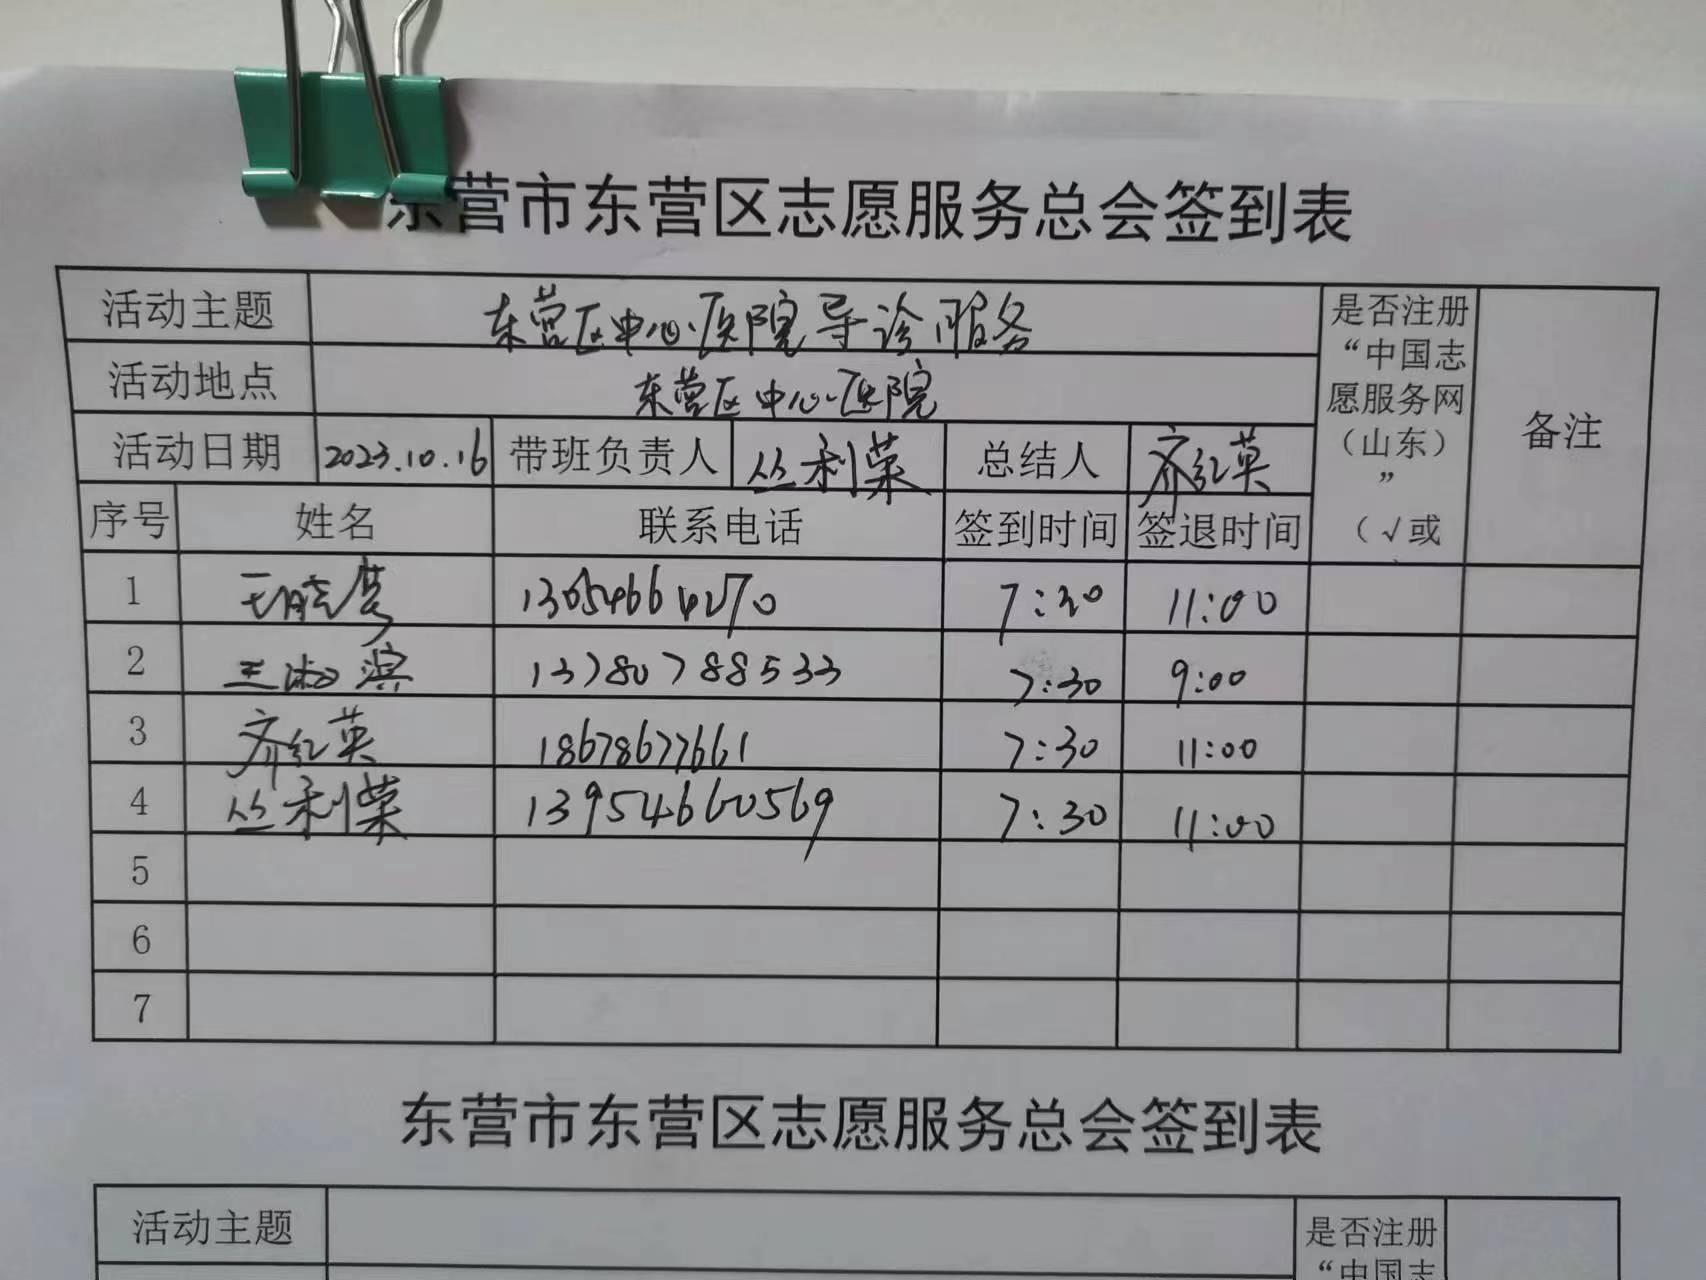 东营市东营区志愿服务总会签到表
活动主题 东营区中心医院导诊服务 是否注册“中国志愿服务网（山东）”（√或 备注
活动地点 东营区中心医院
活动日期 2023.10.16 带班负责人 丛利荣 总结人 齐红英
序号 姓名 联系电话 签到时间 签退时间
1 王晓梦 13054664270 7:30 11:00
2 王淑滨 13780788533 7:30 9:00
3 齐红英 18678677661 7:30 11:00
4 丛利荣 13954660569 7:30 11:00
5
6
7
东营市东营区志愿服务总会签到表
活动主题 是否注册“中国志